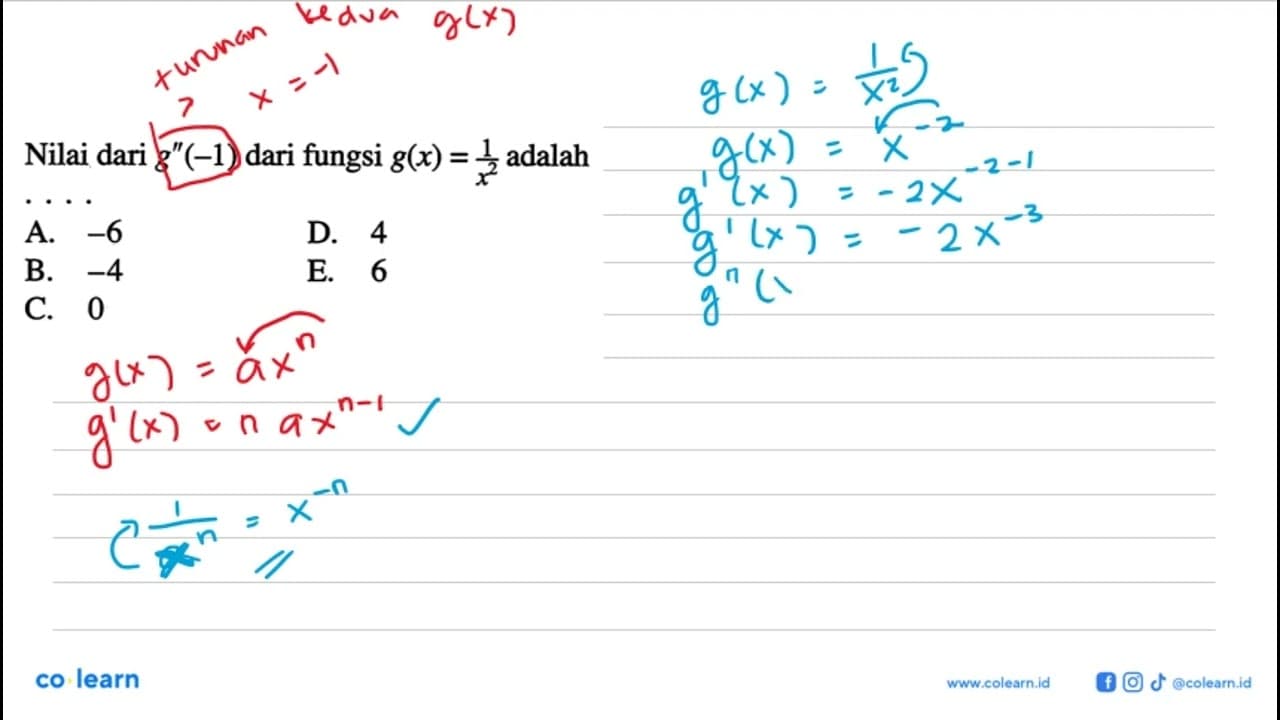 turunan kedua g(x)
? x = -1
Nilai dari g''(-1) dari fungsi g(x) = 1/x² adalah
. . . .
A. -6
B. -4
C. 0
D. 4
E. 6
g(x) = axⁿ
g'(x) = n axⁿ⁻¹ ✓
1/xⁿ = x⁻ⁿ
g(x) = 1/x²
g(x) = x⁻²
g'(x) = -2x⁻²⁻¹
g'(x) = -2x⁻³
g''(
co learn
www.colearn.id
@colearn.id